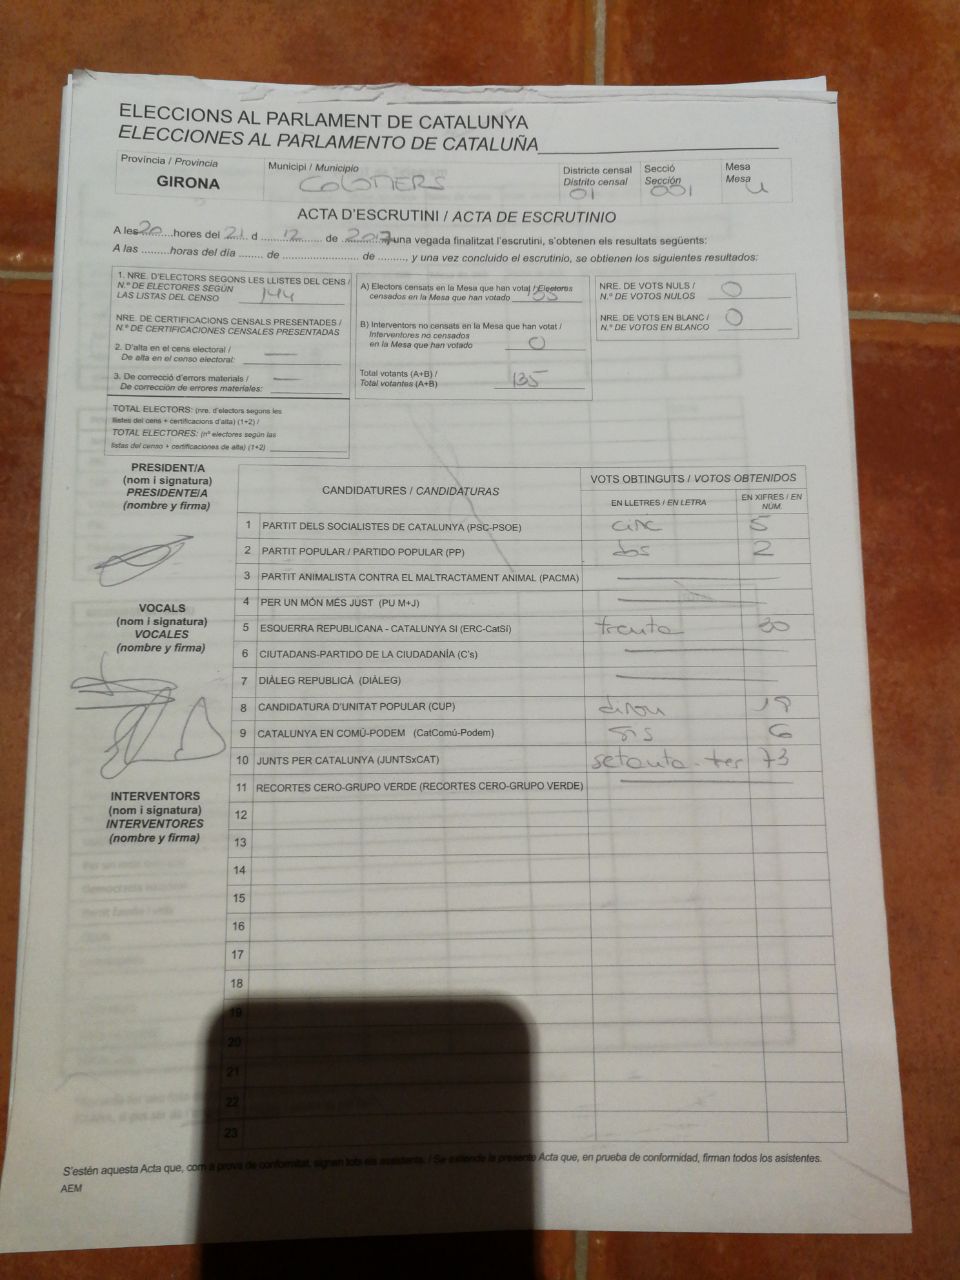 ELECCIONS AL PARLAMENT DE CATALUNYA
ELECCIONES AL PARLAMENTO DE CATALUÑA
Província / Provincia
GIRONA
Municipi / Municipio
COLOMERS
Districte censal
Distrito censal
01
Secció
Sección
001
Mesa
Mesa
U
ACTA D'ESCRUTINI / ACTA DE ESCRUTINIO
A les 20 hores del 21 d 12 de 2017, una vegada finalitzat l'escrutini, s'obtenen els resultats següents:
A las ......... horas del día ........ de ........................ de ........., y una vez concluido el escrutinio, se obtienen los siguientes resultados:
1. NRE. D'ELECTORS SEGONS LES LLISTES DEL CENS /
N.º DE ELECTORES SEGÚN
LAS LISTAS DEL CENSO 144
NRE. DE CERTIFICACIONS CENSALS PRESENTADES /
N.º DE CERTIFICACIONES CENSALES PRESENTADAS
2. D'alta en el cens electoral /
De alta en el censo electoral: —
3. De correcció d'errors materials /
De corrección de errores materiales: —
TOTAL ELECTORS: (nre. d'electors segons les
llistes del cens + certificacions d'alta) (1+2) /
TOTAL ELECTORES: (nº electores según las
listas del censo + certificaciones de alta) (1+2)
A) Electors censats en la Mesa que han votat / Electores
censados en la Mesa que han votado 135
B) Interventors no censats en la Mesa que han votat /
Interventores no censados
en la Mesa que han votado 0
Total votants (A+B) /
Total votantes (A+B) 135
NRE. DE VOTS NULS /
N.º DE VOTOS NULOS 0
NRE. DE VOTS EN BLANC /
N.º DE VOTOS EN BLANCO 0
PRESIDENT/A
(nom i signatura)
PRESIDENTE/A
(nombre y firma)
VOCALS
(nom i signatura)
VOCALES
(nombre y firma)
INTERVENTORS
(nom i signatura)
INTERVENTORES
(nombre y firma)
CANDIDATURES / CANDIDATURAS
VOTS OBTINGUTS / VOTOS OBTENIDOS
EN LLETRES / EN LETRA
EN XIFRES / EN NÚM.
1 PARTIT DELS SOCIALISTES DE CATALUNYA (PSC-PSOE) cinc 5
2 PARTIT POPULAR / PARTIDO POPULAR (PP) dos 2
3 PARTIT ANIMALISTA CONTRA EL MALTRACTAMENT ANIMAL (PACMA) —
4 PER UN MÓN MÉS JUST (PU M+J) —
5 ESQUERRA REPUBLICANA - CATALUNYA SI (ERC-CatSí) trenta 30
6 CIUTADANS-PARTIDO DE LA CIUDADANÍA (C's) —
7 DIÀLEG REPUBLICÀ (DIÀLEG) —
8 CANDIDATURA D'UNITAT POPULAR (CUP) dinou 19
9 CATALUNYA EN COMÚ-PODEM (CatComú-Podem) sis 6
10 JUNTS PER CATALUNYA (JUNTSxCAT) setanta-tres 73
11 RECORTES CERO-GRUPO VERDE (RECORTES CERO-GRUPO VERDE) —
12
13
14
15
16
17
18
19
20
21
22
23
S'estén aquesta Acta que, com a prova de conformitat, signen tots els assistents. / Se extiende la presente Acta que, en prueba de conformidad, firman todos los asistentes.
AEM